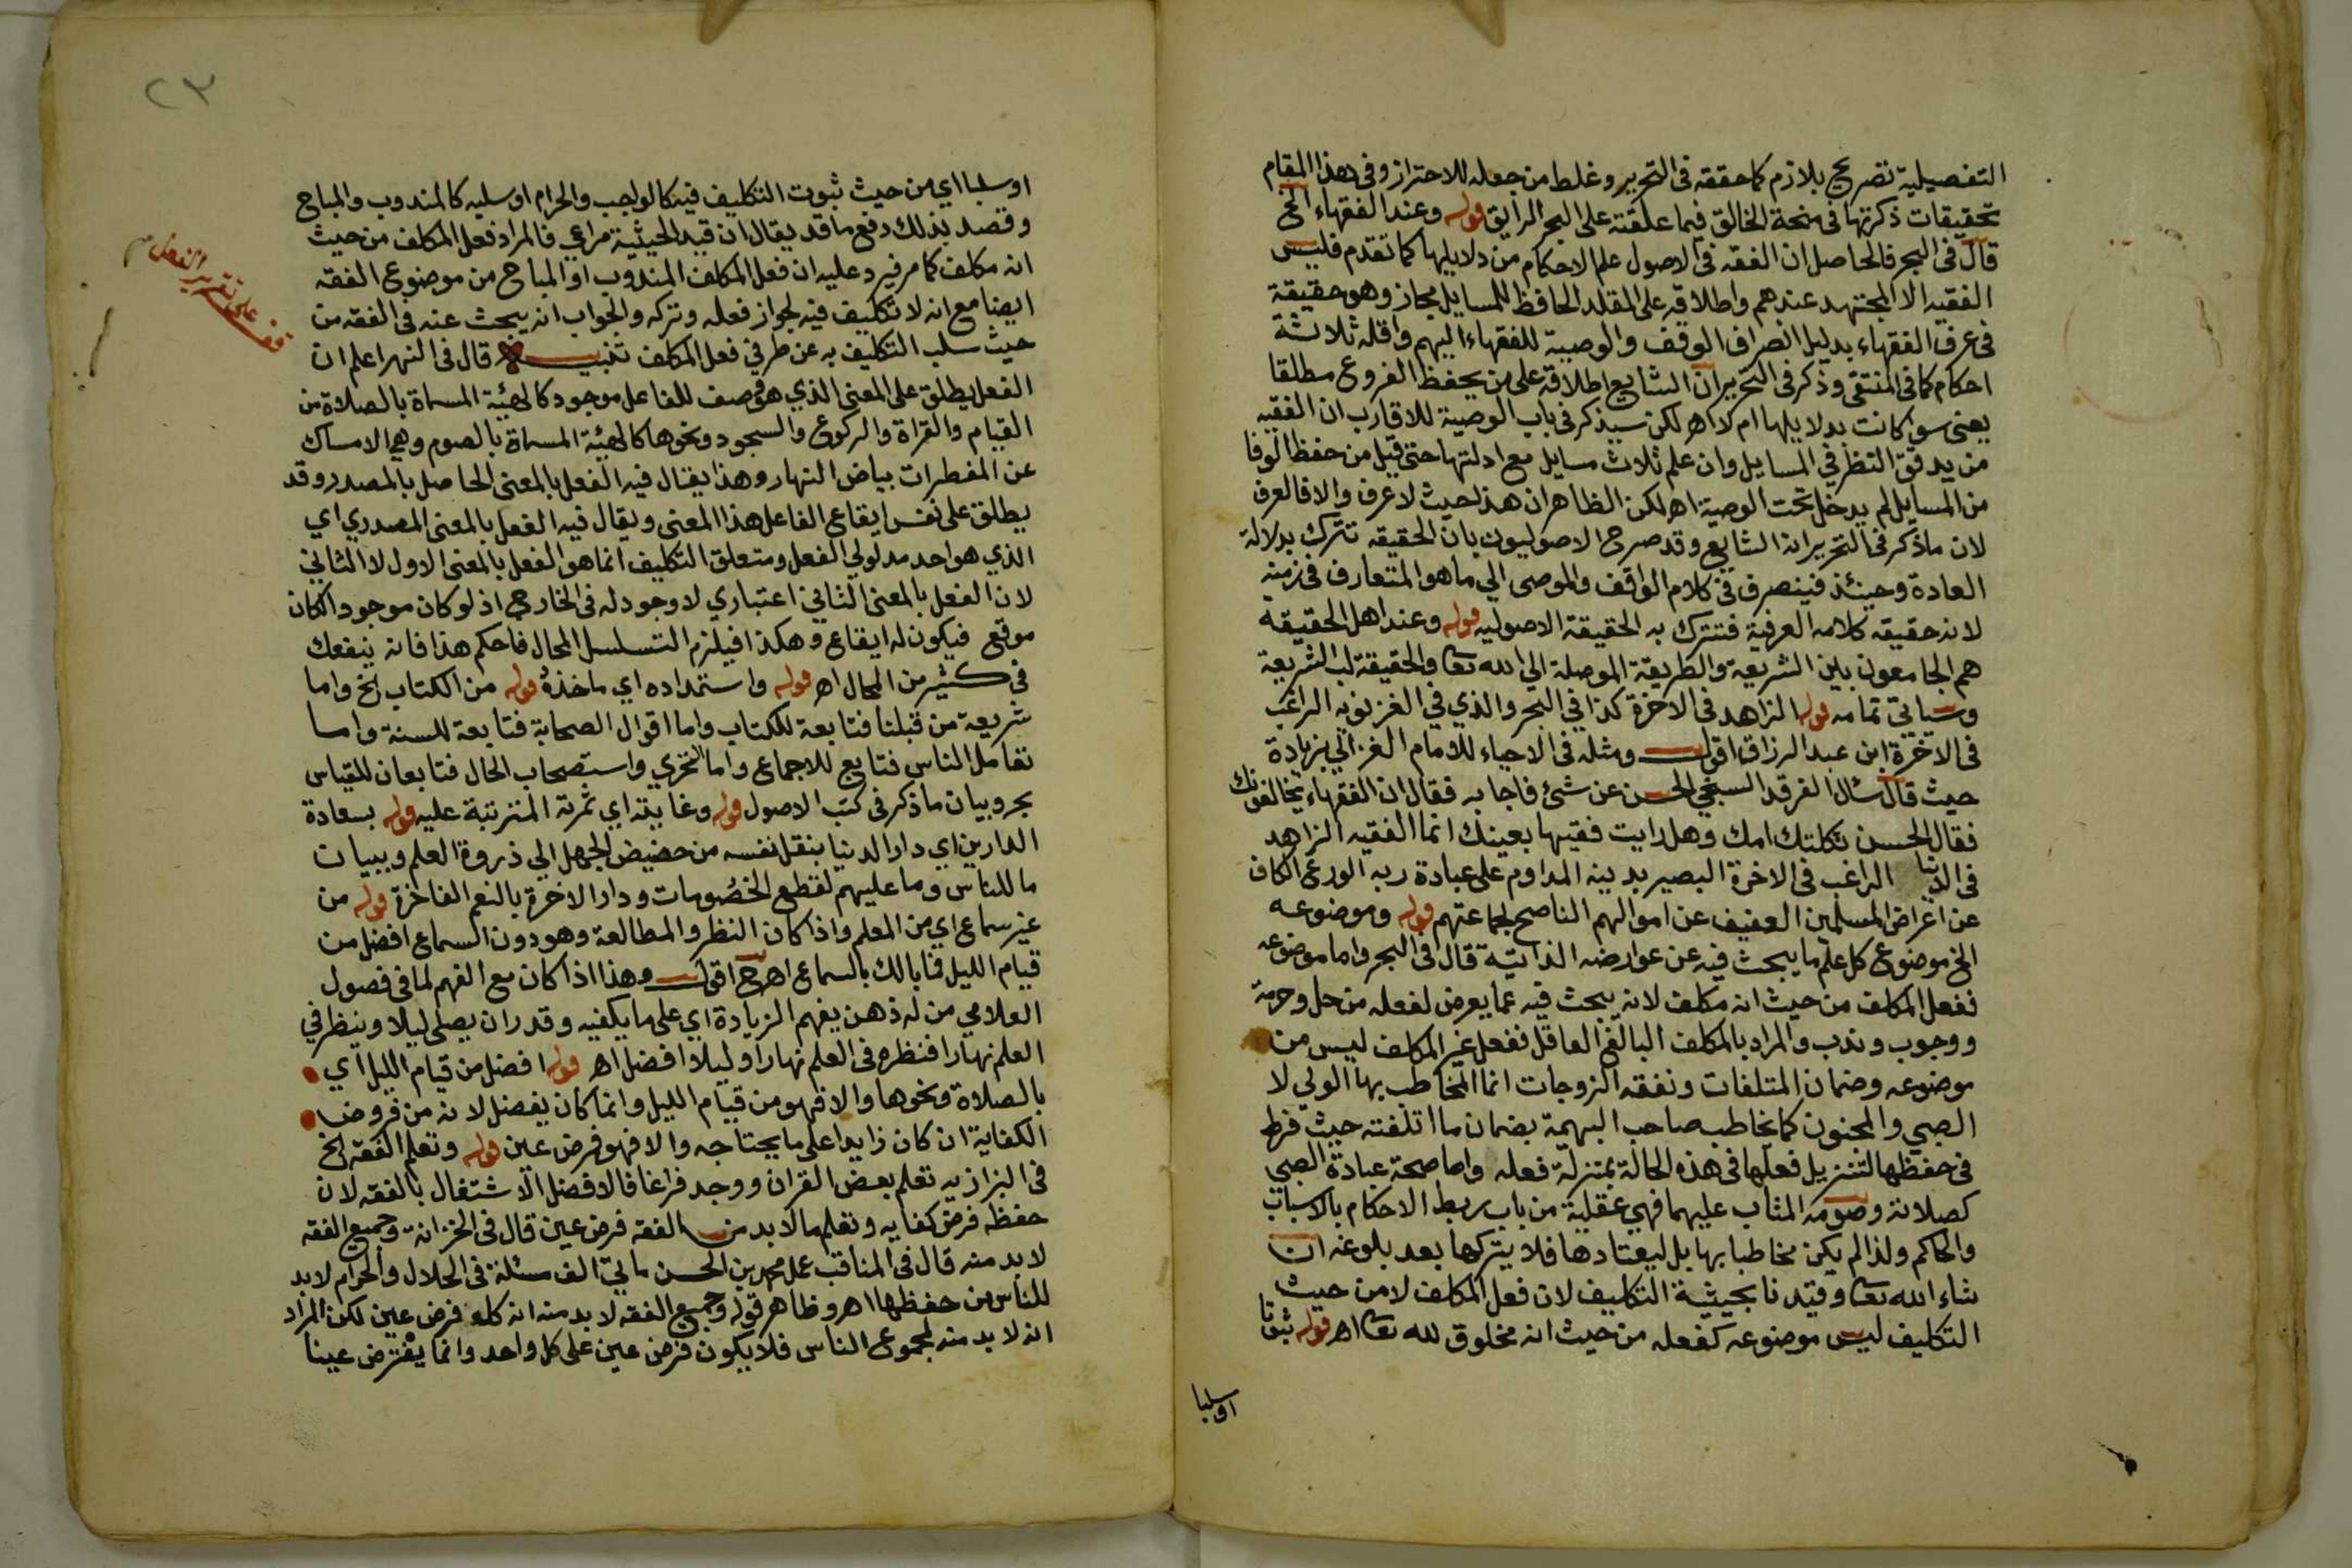 التفصيلية تصريح بلازم كما حققه فى التحرير وغلط من جعله للاحتراز وفى هذا المقام
تحقيقات ذكرتها فى منحة الخالق فيما علقته على البحر الرايق قوله وعند الفقهاء الخ
قال فى البحر فالحاصل ان الفقه فى الاصول علم الاحكام من دلايلها كما تقدم فليس
الفقيه الا المجتهد عندهم واطلاقه على المقلد الحافظ للمسايل مجاز وهو حقيقة
فى عرف الفقهاء بدليل انصراف الوقف والوصية للفقهاء اليهم واقله ثلاثة
احكام كما فى المنتقى وذكر فى التحرير ان الشايع اطلاقه على من يحفظ الفروع مطلقا
يعنى سوا كانت بدلايلها ام لا اهـ لكن سيذكر فى باب الوصية للاقارب ان الفقيه
من يدقق النظر في المسايل وان علم ثلاث مسايل مع ادلتها حتى قيل من حفظ الوفا
من المسايل لم يدخل تحت الوصية اهـ لكن الظاهر ان هذا حيث لا عرف والا فالعرف
لان ماذكر فى التحرير انه الشايع وقد صرح الاصوليون بان الحقيقه تترك بدلالة
العادة وحينئذ فينصرف فى كلام الواقف والموصى الي ما هو المتعارف فى زمنه
لانه حقيقه كلامه العرفية فتترك به الحقيقة الاصوليه قوله وعند اهل الحقيقه
هم الجامعون بين الشريعة والطريقة الموصلة الي الله تعا والحقيقة لب الشريعة
وسياتى تمامه قوله الزاهد فى الاخرة كذا في البحر والذي في الغزنويه الراغب
فى الاخرة ابن عبد الرزاق اقول ومثله فى الاحياء للامام الغزالي بزيادة
حيث قال سئال الفرقد السبخي الحسن عن شئ فاجابه فقال ان الفقهاء يخالفونك
فقال الحسن ثكلتك امك وهل رايت فقيها بعينك انما الفقيه الزاهد
فى الدنيا الراغب فى الاخرة البصير بدينه المداوم على عبادة ربه الورع الكاف
عن اعراض المسلمين العفيف عن اموالهم الناصح لجماعتهم قوله وموضوعه
الخ موضوع كل علم ما يبحث فيه عن عوارضه الذاتية قال فى البحر واما موضوعه
ففعل المكلف من حيث انه مكلف لانه يبحث فيه عما يعرض لفعله من حل وحرمة
ووجوب وندب والمراد بالمكلف البالغ العاقل ففعل غير المكلف ليس من
موضوعه وضمان المتلفات ونفقه الزوجات انما المخاطب بها الولي لا
الصبي والمجنون كما يخاطب صاحب البهيمة بضمان ما اتلفته حيث فرط
فى حفظها لتنزيل فعلها فى هذه الحالة بمنزلة فعله واما صحة عبادة الصبي
كصلاته وصومه المثاب عليهما فهي عقلية من باب ربط الاحكام بالاسباب
والحاكم ولذا لم يكن مخاطبا بها بل ليعتادها فلا يتركها بعد بلوغه ان
شاء الله تعا وقيدنا بحيثية التكليف لان فعل المكلف لا من حيث
التكليف ليس موضوعه كفعله من حيث انه مخلوق لله تعا اهـ قوله ثبوتا
اوسلبا
٢٣
اوسلبا اي من حيث ثبوت التكليف فيه كالواجب والحرام اوسلبه كالمندوب والمباح
وقصد بذلك دفع ما قد يقال ان قيد الحيثية مراعي فالمراد فعل المكلف من حيث
انه مكلف كما مر فيرد عليه ان فعل المكلف المندوب او المباح من موضوع الفقه
ايضا مع انه لا تكليف فيه لجواز فعله وتركه والجواب انه يبحث عنه فى الفقه من
حيث سلب التكليف به عن طرفي فعل المكلف تنبيه قال فى النهر اعلم ان
الفعل يطلق على المعنى الذي هو وصف للفاعل موجود كالهيئة المسماة بالصلاة من
القيام والقراة والركوع والسجود ونحوها كالهيئة المسماة بالصوم وهي الامساك
عن المفطرات بياض النهار وهذا يقال فيه الفعل بالمعنى الحاصل بالمصدر وقد
يطلق على نفس ايقاع الفاعل هذا المعنى ويقال فيه الفعل بالمعنى المصدري اي
الذي هو احد مدلولي الفعل ومتعلق التكليف انما هو الفعل بالمعنى الاول لا الثاني
لان الفعل بالمعنى الثاني اعتباري لا وجود له فى الخارج اذ لو كان موجودا لكان
موقع فيكون له ايقاع وهكذا فيلزم التسلسل المحال فاحكم هذا فانه ينفعك
فى كثير من المحال اهـ قوله واستمداده اي ماخذه قوله من الكتاب الخ واما
شريعة من قبلنا فتابعة للكتاب واما اقوال الصحابة فتابعة للسنة واما
تعامل الناس فتابع للاجماع واما التحري واستصحاب الحال فتابعان للقياس
بحر وبيان ما ذكر فى كتب الاصول قوله وغايته اي ثمرته المترتبة عليه قوله بسعادة
الدارين اي دار الدنيا بنقل نفسه من حضيض الجهل الي ذروة العلم وببيان
ما للناس وما عليهم لقطع الخصومات ودار الاخرة بالنعم الفاخرة قوله من
غير سماع اي من المعلم واذا كان النظر والمطالعة وهو دون السماع افضل من
قيام الليل فما بالك بالسماع اهـ ح اقول وهذا اذا كان مع الفهم لما فى فصول
العلامي من له ذهن يفهم الزيادة اي على ما يكفيه وقدر ان يصلى ليلا وينظر في
العلم نهارا فنظره فى العلم نهارا وليلا افضل اهـ قوله افضل من قيام الليل اي
بالصلاة ونحوها والا فهو من قيام الليل وانما كان يفضل لانه من فروض
الكفاية ان كان زايدا على ما يحتاجه والا فهو فرض عين قوله وتعلم الفقه الخ
فى البزازيه تعلم بعض القران ووجد فراغا فالافضل الاشتغال بالفقه لان
حفظه فرض كفايه وتعلم ما لا بد من الفقه فرض عين قال فى الخزانة وجميع الفقه
لا بد منه قال فى المناقب عمل محمد بن الحسن مايتي الف مسئلة فى الحلال والحرام لا بد
للناس من حفظها اهـ وظاهر قوله وجميع الفقه لا بد منه انه كله فرض عين لكن المراد
انه لا بد منه لمجموع الناس فلا يكون فرض عين على كل واحد وانما يفترض عينا